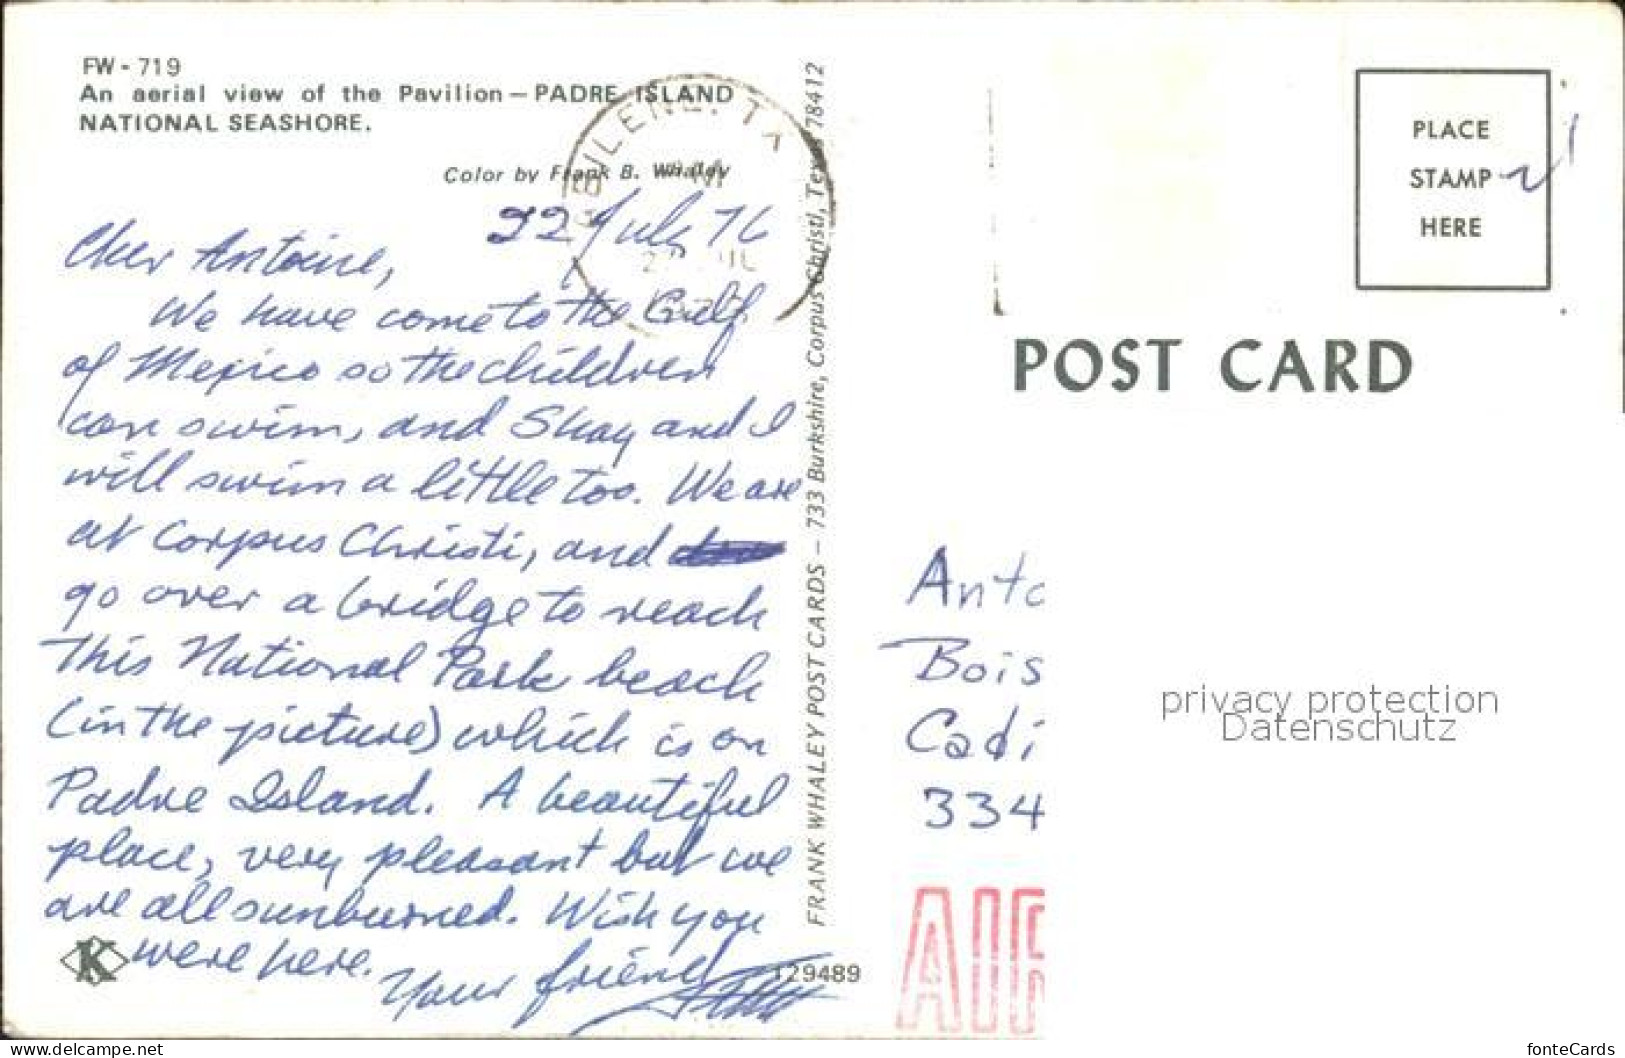 FW - 719
An aerial view of the Pavilion — PADRE ISLAND
NATIONAL SEASHORE.
Color by Frank B. Whaley
22 July 76
Cher Antoine,
We have come to the Gulf
of Mexico so the children
can swim, and Shay and I
will swim a little too. We are
at Corpus Christi, and
go over a bridge to reach
this National Park beach
(in the picture) which is on
Padre Island. A beautiful
place, very pleasant but we
are all sunburned. Wish you
were here.
Your friend
K
129489
ABILENE, TX
FRANK WHALEY POST CARDS — 733 Burkshire, Corpus Christi, Texas 78412
PLACE
STAMP
HERE
POST CARD
Anto
Bois
Cadi
334
AIR
privacy protection
Datenschutz
https://www.ansichtskarten-center.de/
fonteCards